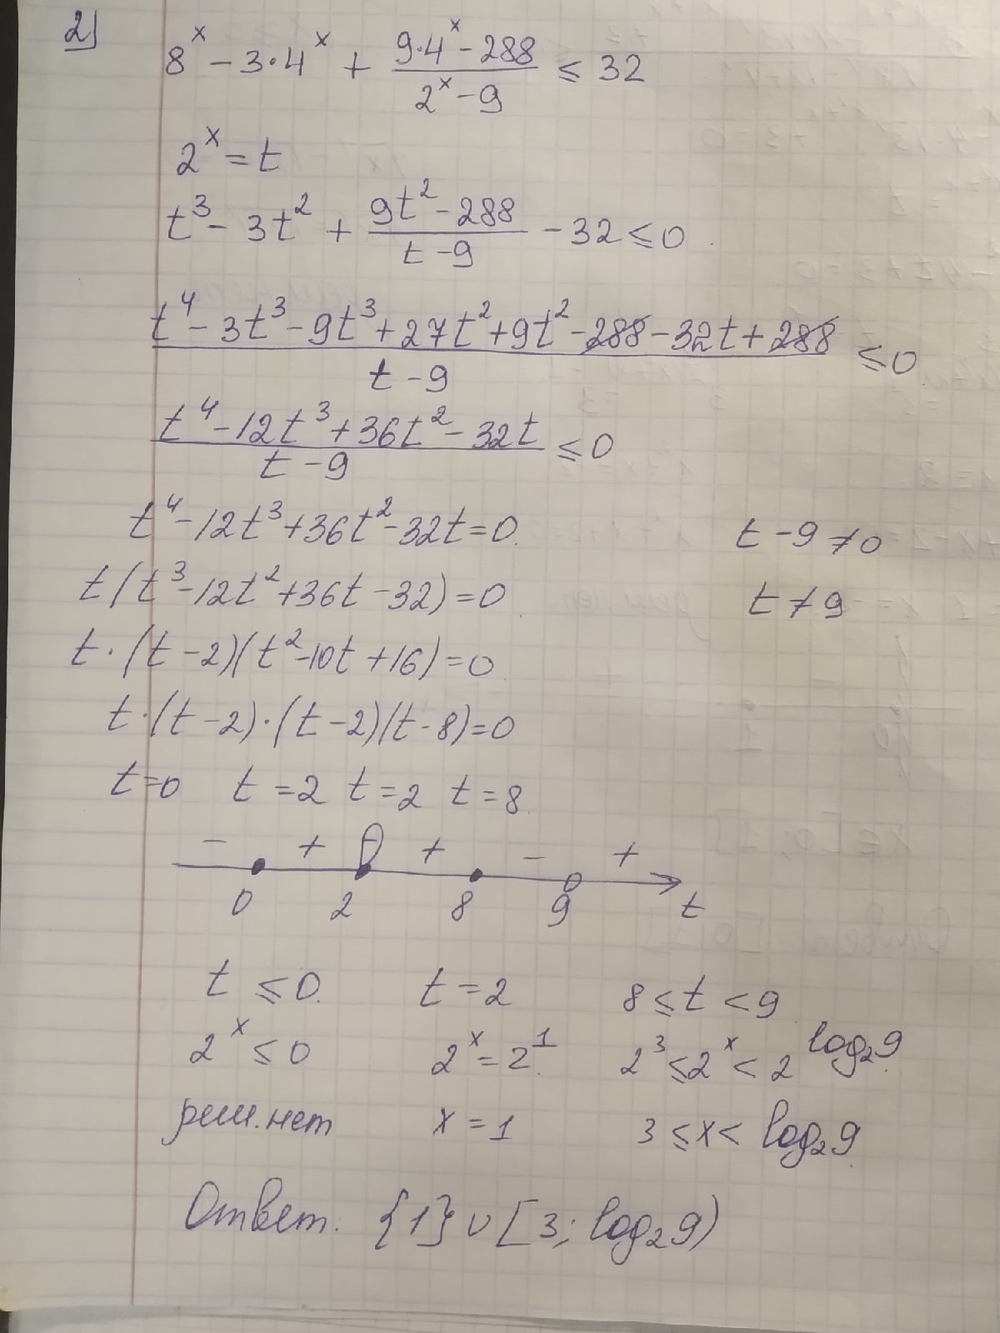 2)
8^x - 3·4^x + (9·4^x - 288)/(2^x - 9) ≤ 32
2^x = t
t^3 - 3t^2 + (9t^2 - 288)/(t - 9) - 32 ≤ 0
(t^4 - 3t^3 - 9t^3 + 27t^2 + 9t^2 - 288 - 32t + 288)/(t - 9) ≤ 0
(t^4 - 12t^3 + 36t^2 - 32t)/(t - 9) ≤ 0
t^4 - 12t^3 + 36t^2 - 32t = 0 t - 9 ≠ 0
t(t^3 - 12t^2 + 36t - 32) = 0 t ≠ 9
t·(t - 2)(t^2 - 10t + 16) = 0
t·(t - 2)·(t - 2)(t - 8) = 0
t = 0 t = 2 t = 2 t = 8
- + + - +
0 2 8 9 t
t ≤ 0 t = 2 8 ≤ t < 9
2^x ≤ 0 2^x = 2^1 2^3 ≤ 2^x < 2^(log_2 9)
реш. нет x = 1 3 ≤ x < log_2 9
Ответ: {1} ∪ [3; log_2 9)